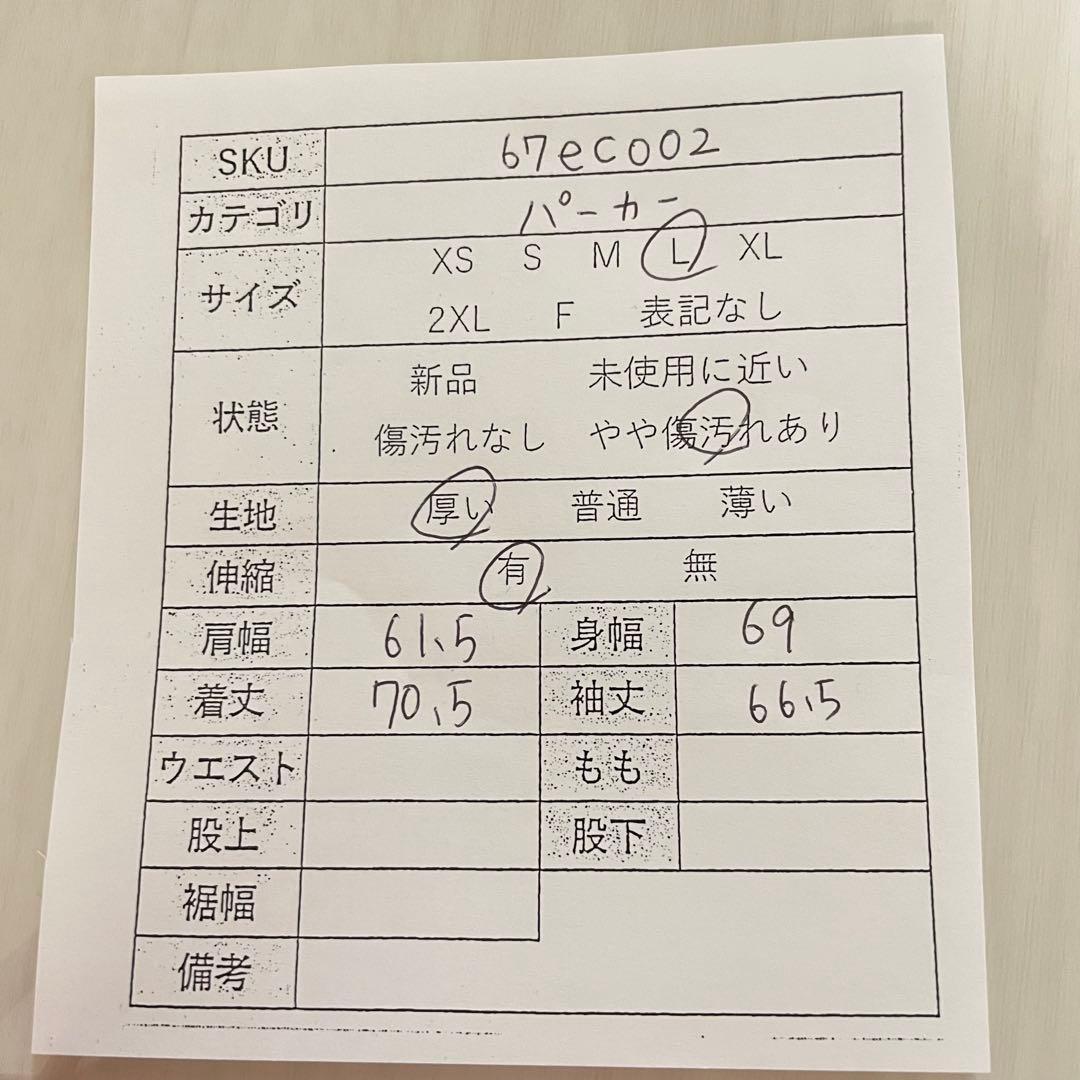 SKU 67eco02
カテゴリ パーカー
サイズ XS S M L XL
2XL F 表記なし
状態 新品 未使用に近い
傷汚れなし やや傷汚れあり
生地 厚い 普通 薄い
伸縮 有 無
肩幅 61.5 身幅 69
着丈 70.5 袖丈 66.5
ウエスト もも
股上 股下
裾幅
備考